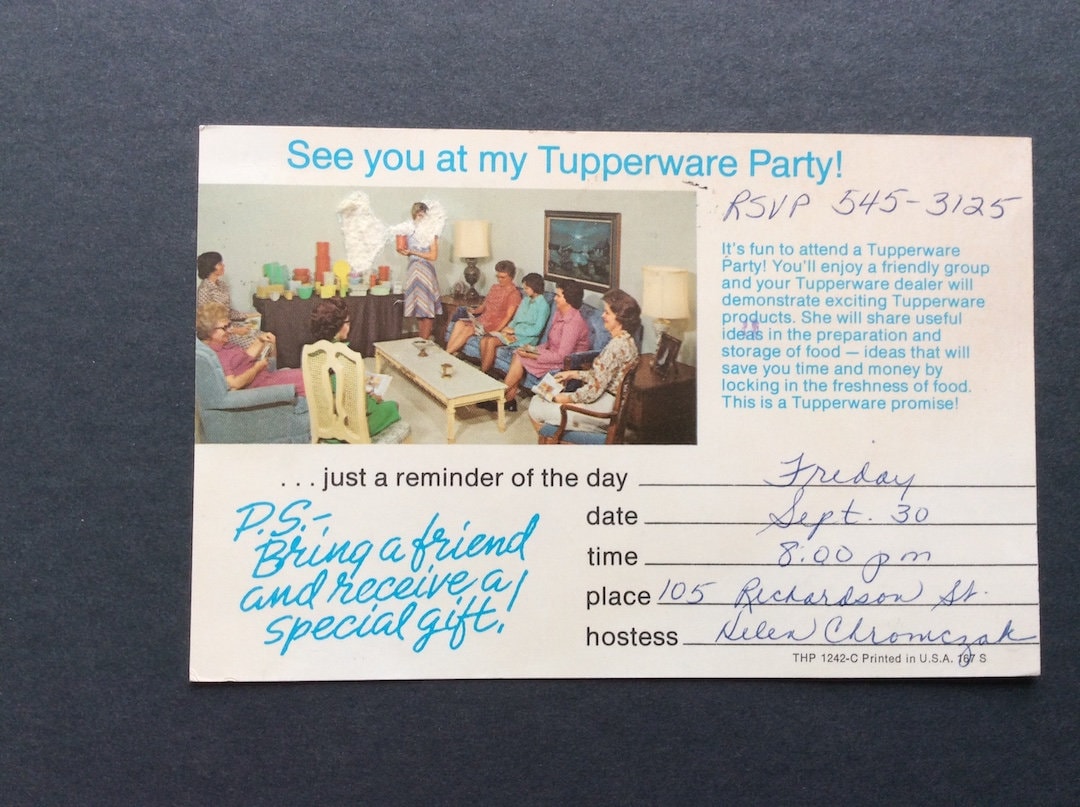 See you at my Tupperware Party!
RSVP 545-3125
It's fun to attend a Tupperware
Party! You'll enjoy a friendly group
and your Tupperware dealer will
demonstrate exciting Tupperware
products. She will share useful
ideas in the preparation and
storage of food — ideas that will
save you time and money by
locking in the freshness of food.
This is a Tupperware promise!
. . . just a reminder of the day Freday
date Sept. 30
time 8:00 pm
place 105 Richardson St.
hostess Helen Chromczak
P.S.-
Bring a friend
and receive a
special gift!
THP 1242-C Printed in U.S.A. 167 S